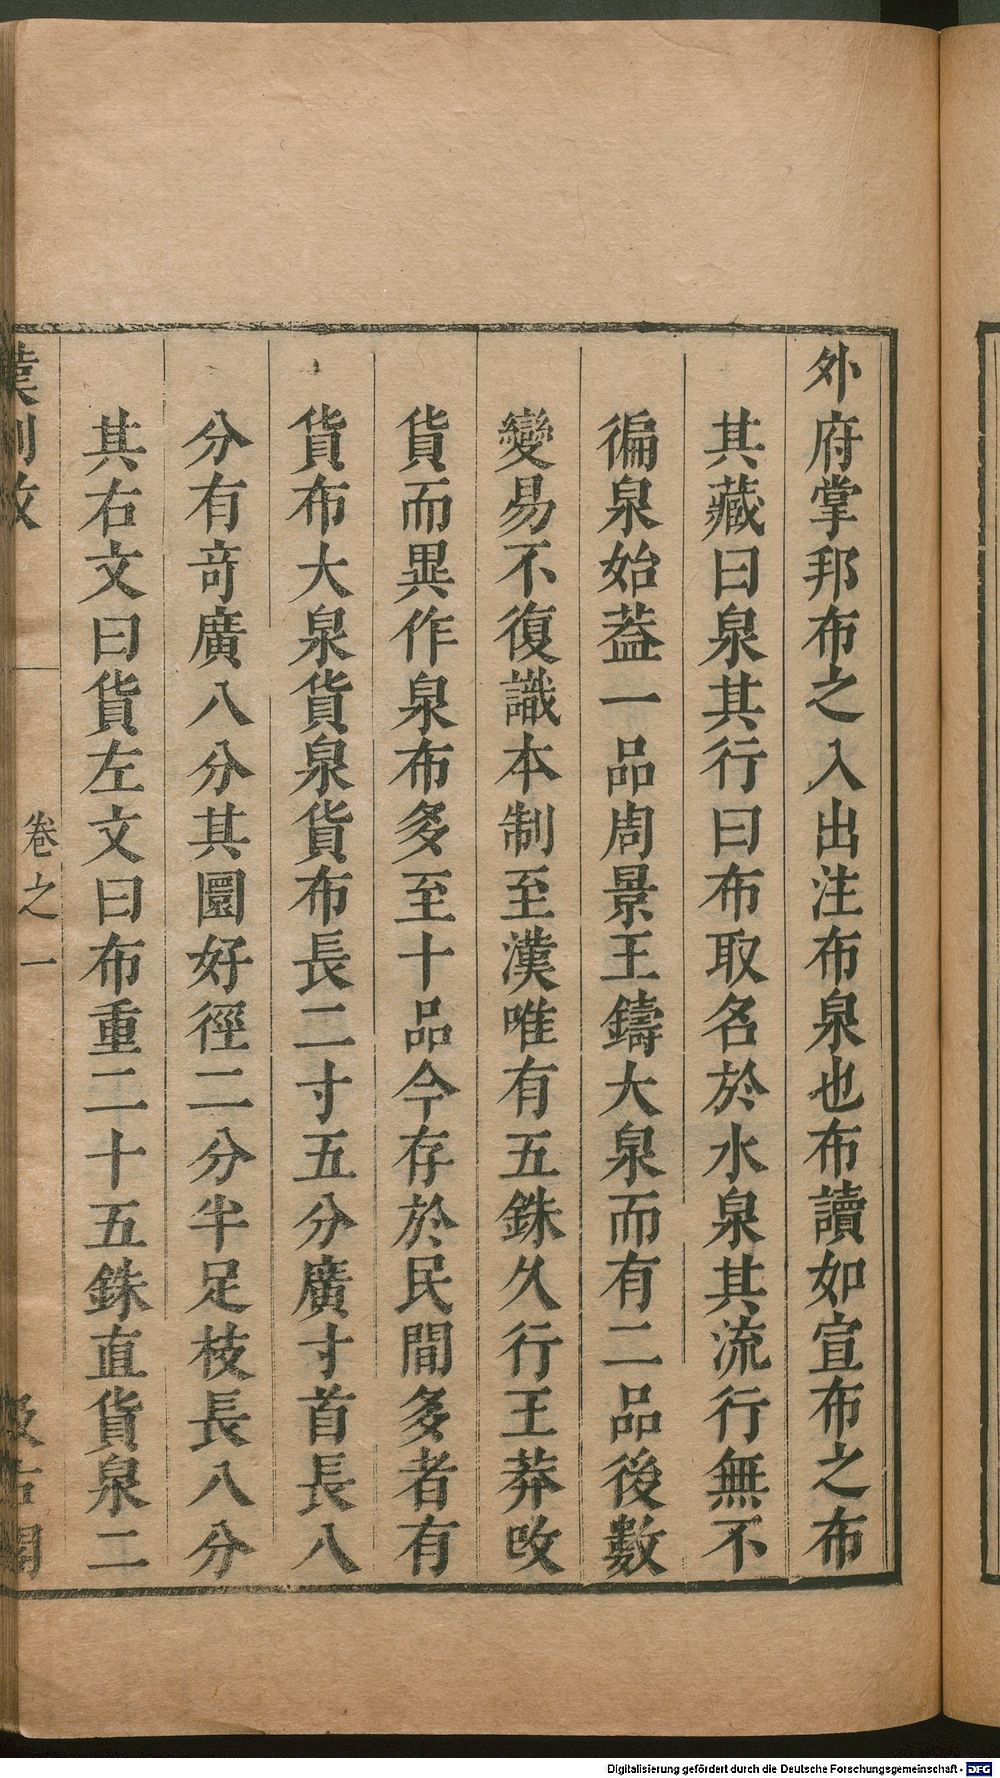 外府掌邦布之入出注布泉也布讀如宣布之布
其藏曰泉其行曰布取名於水泉其流行無不
徧泉始蓋一品周景王鑄大泉而有二品後數
變易不復識本制至漢唯有五銖久行王莽改
貨而異作泉布多至十品今存於民間多者有
貨布大泉貨泉貨布長二寸五分廣寸首長八
分有奇廣八分其圜好徑二分半足枝長八分
其右文曰貨左文曰布重二十五銖直貨泉二
卷之一
Digitalisierung gefördert durch die Deutsche Forschungsgemeinschaft - DFG